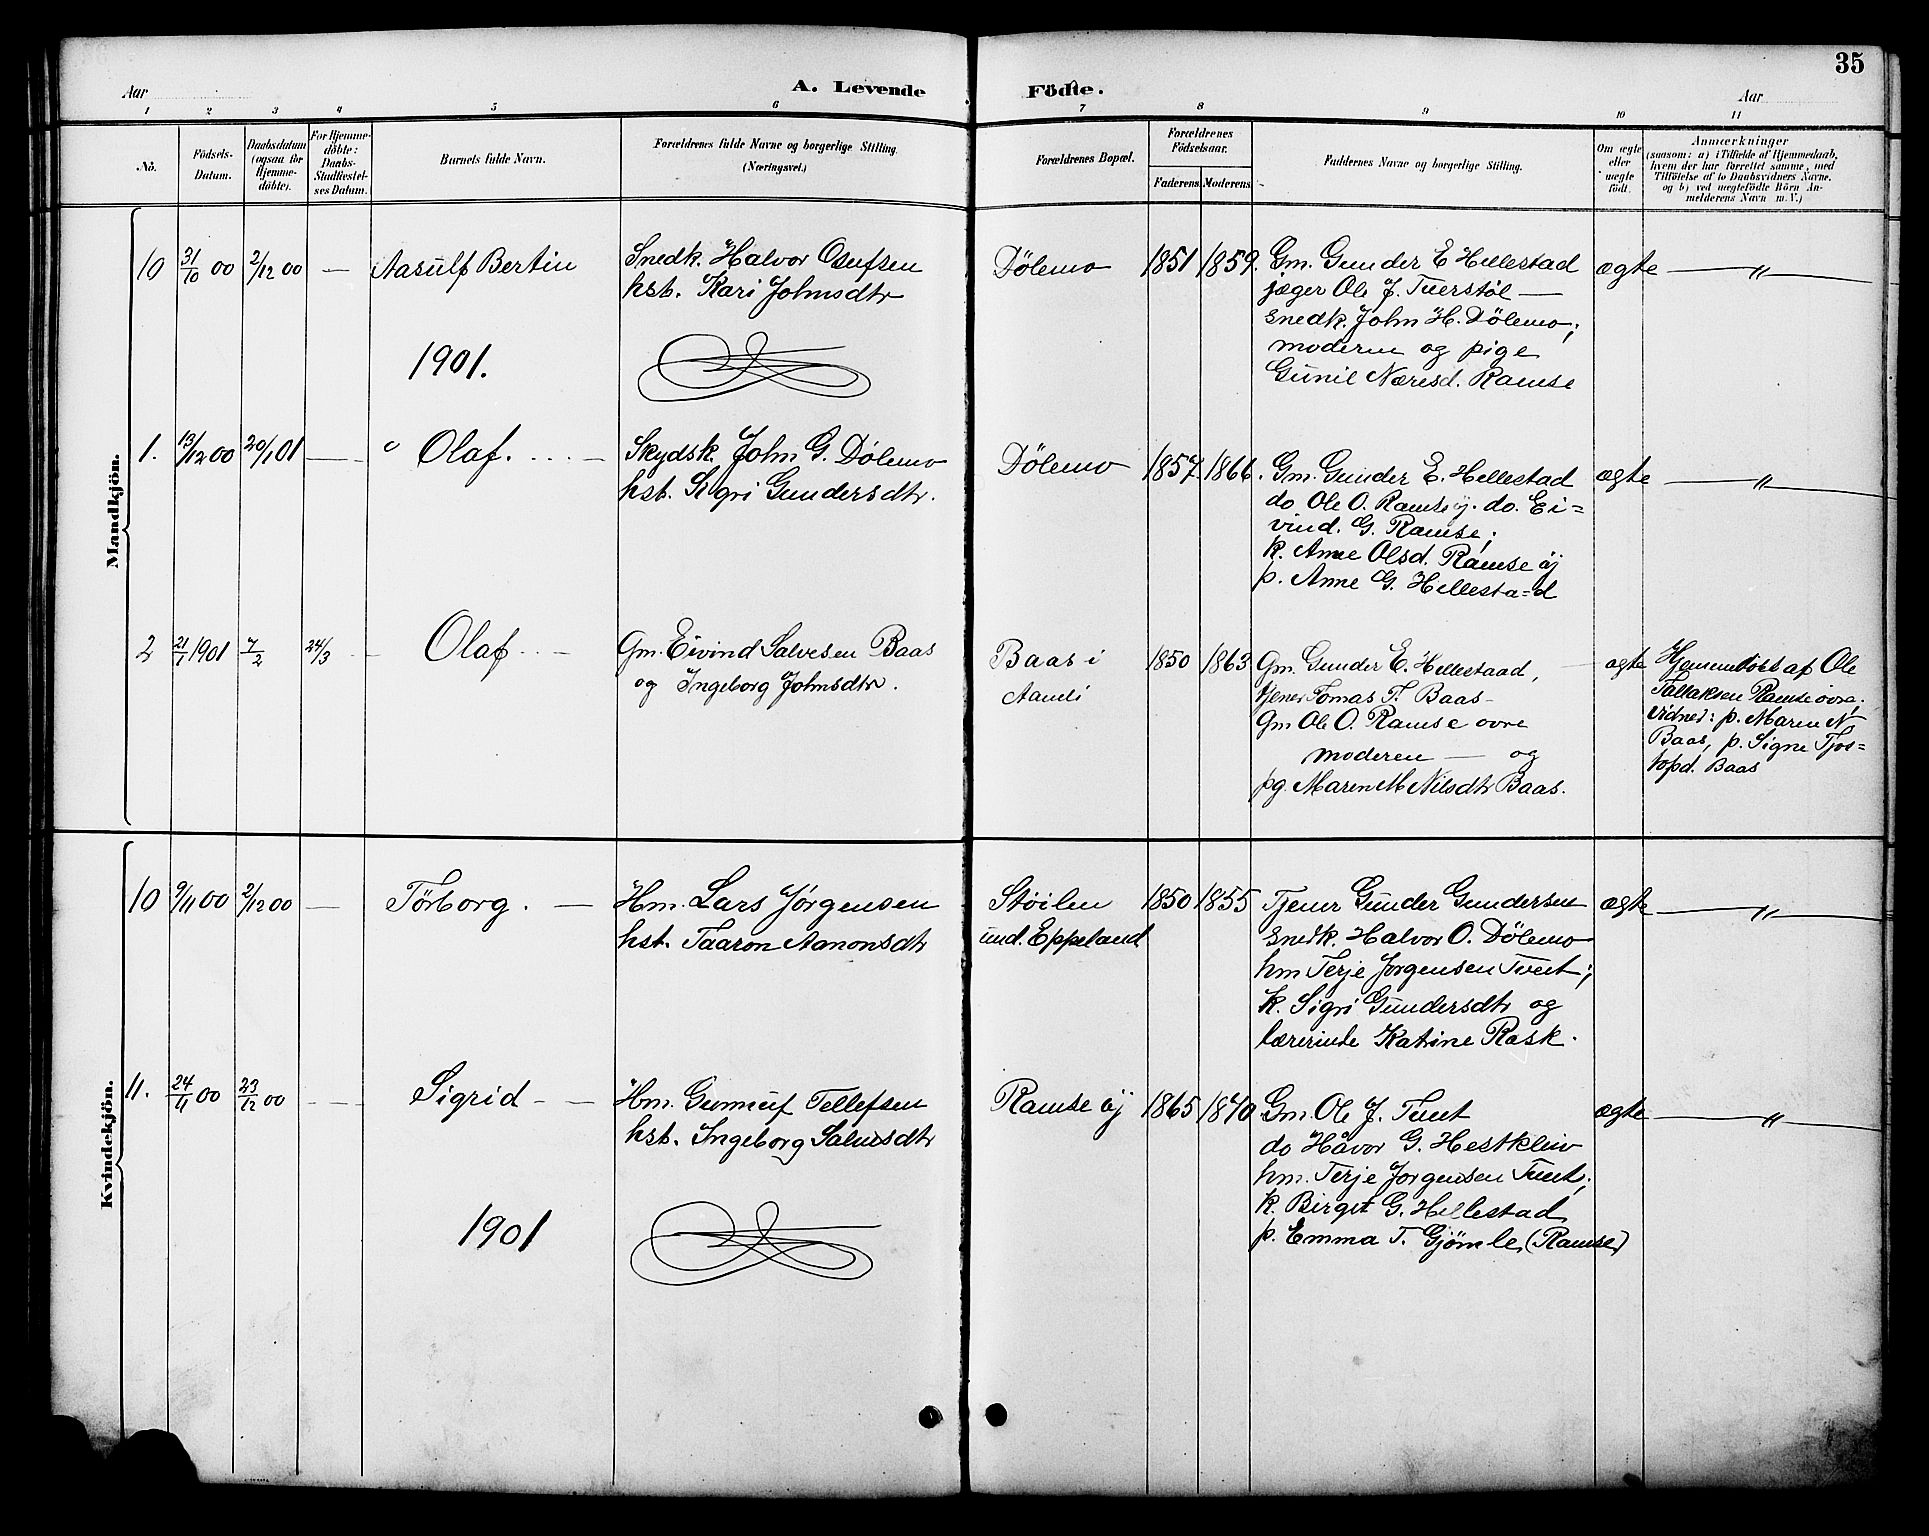 35
Aar
A. Levende
Födte.
Aar
1 2 3 4 5 6 7 8 9 10 11
No.
Födsels-
Datum.
Daabsdatum
(ogsaa for
Hjemme-
döbte).
For Hjemme-
döbte:
Daabs-
Stadfæstel-
ses Datum.
Barnets fulde Navn.
Forældrenes fulde Navne og borgerlige Stilling
(Næringsvei.)
Forældrenes Bopæl.
Forældrenes
Födselsaar.
Faderens Moderens
Faddernes Navne og borgerlige Stilling.
Om ægte
eller
uægte
födt.
Anmærkninger
(saasom: a) i Tilfælde af Hjemmedaab,
hvem der har forrettet samme, med
Tilföielse af to Daabsvidners Navne,
og b) ved uægtefödte Börn An-
melderens Navn m. V.)
Mandkjön.
10 31/10 00 2/12 00 — Aasulf Bertin
Snedk. Halvor Osufsen
hst. Kari Johnsdtr
Dölemo 1851 1859.
Gm. Gunder E Hellestad
jæger Ole J. Tverstöl —
snedk. John H. Dölemo;
moderen og pige
Gunil Næresd. Ramse
ægte — " —
1901.
1. 13/12 00 20/1 01 — Olaf. - - - —
Skydsk. John G. Dölemo
hst. Sigri Gundersdtr.
Dölemo 1857. 1866.
Gm. Gunder E. Hellestad
do Ole O. Ramse öj. do. Ei=
vind. G. Ramse;
k. Anne Olsd. Ramse öj
p. Anne G. Hellesta=d
ægte — " —
2 21/1 1901 7/2 24/3 — Olaf - - —
Gm. Eivind Salvesen Baas
og Ingeborg Johnsdtr.
Baas i
Aamli
1850 1863
Gm. Gunder E. Hellestaad,
tjener Tomas T. Baas -
Gm Ole O. Ramse övre
moderen — og
pg. Maren M Nilsdtr Baas.
ægte
Hjemmedöbt af Ole
Tallaksen Ramse övre.
Vidner: p. Maren N
Baas, p. Signe Tjos=
topd. Baas
Kvindekjön.
10 9/11 00 2/12 00 — Törborg. —
Hm. Lars Jörgensen
hst. Taaron Aanonsdtr
Stöilen
und. Eppeland
1850 1855
Tjener Gunder Gundersen
snedk. Halvor O. Dölemo
hm Terje Jorgensen Tveit;
k. Sigri Gundersdtr og
lærerinde Katrine Rask.
ægte — " —
11. 24/11 00 23/12 00 — Sigrid - —
Hm. Gunnuf Tellefsen
hst. Ingeborg Salvesdtr
Ramse öj 1865 1870.
Gm. Ole J. Tveit
do Håvor G. Hestkleiv
hm. Terje Jorgensen Tveit;
k. Birget G. Hellestad
p. Emma T. Gjömle, (Ramse)
ægte — " —
1901